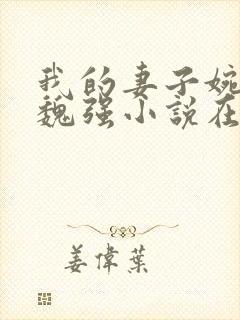 我的妻子婉
魏强小说在
姜偉葉